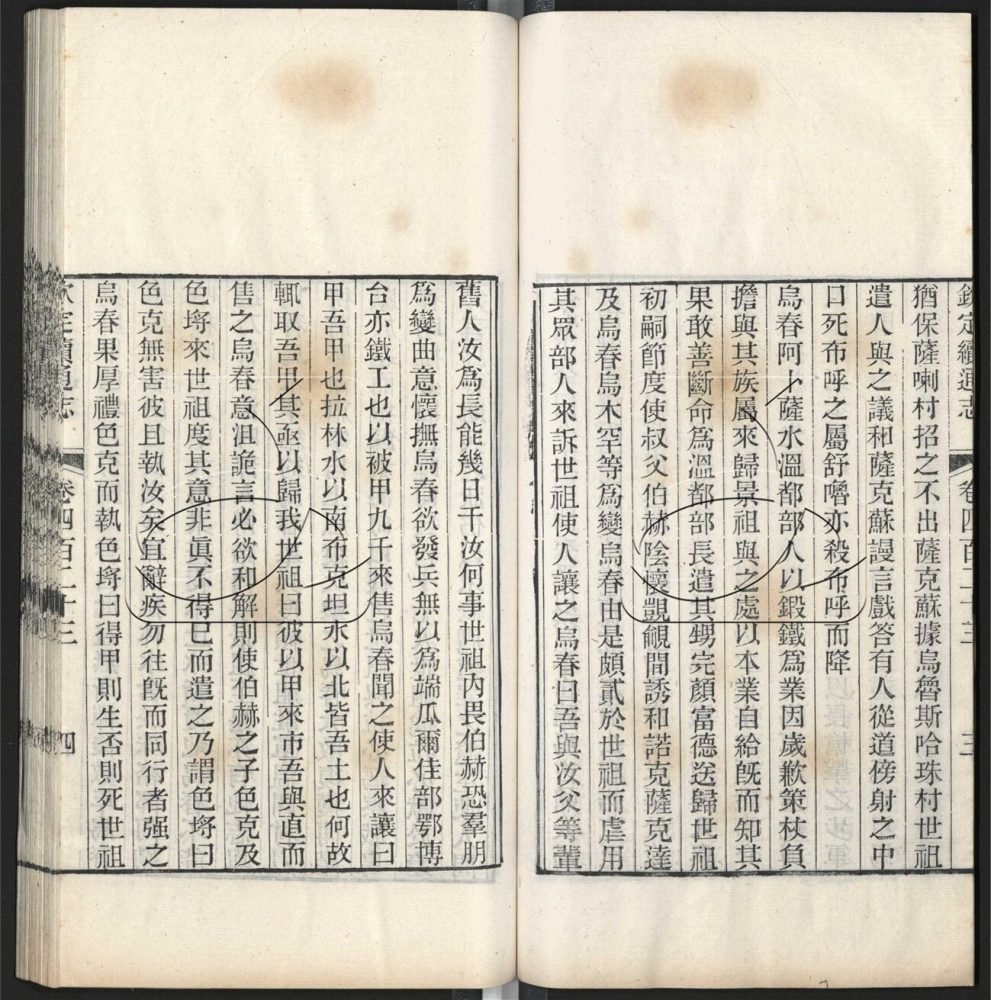 欽定續通志 卷四百二十三 三
猶保薩喇村招之不出薩克蘇據烏魯斯哈珠村世祖
遣人與之議和薩克蘇謾言戲答有人從道傍射之中
口死布呼之屬舒嚕亦殺布呼而降
烏春阿卜薩水溫都部人以鍛鐵為業因歲歉策杖負
擔與其族屬來歸景祖與之處以本業自給旣而知其
果敢善斷命為溫都部長遣其甥完顏富德送歸世祖
初嗣節度使叔父伯赫陰懷覬覦間誘和諾克薩克達
及烏春烏木罕等為變烏春由是頗貳於世祖而虐用
其眾部人來訴世祖使人讓之烏春曰吾與汝父等輩
舊人汝為長能幾日干汝何事世祖內畏伯赫恐羣朋
為變曲意懷撫烏春欲發兵無以為端瓜爾佳部鄂博
台亦鐵工也以被甲九十來售烏春聞之使人來讓曰
甲吾甲也拉林水以南布克坦水以北皆吾土也何故
輒取吾甲其亟以歸我世祖曰彼以甲來市吾與直而
售之烏春意沮詭言必欲和解則使伯赫之子色克及
色埒來世祖度其意非眞不得已而遣之乃謂色埒曰
色克無害彼且執汝矣宜辭疾勿往旣而同行者强之
烏春果厚禮色克而執色埒曰得甲則生否則死世祖
欽定續通志 卷四百二十三 四